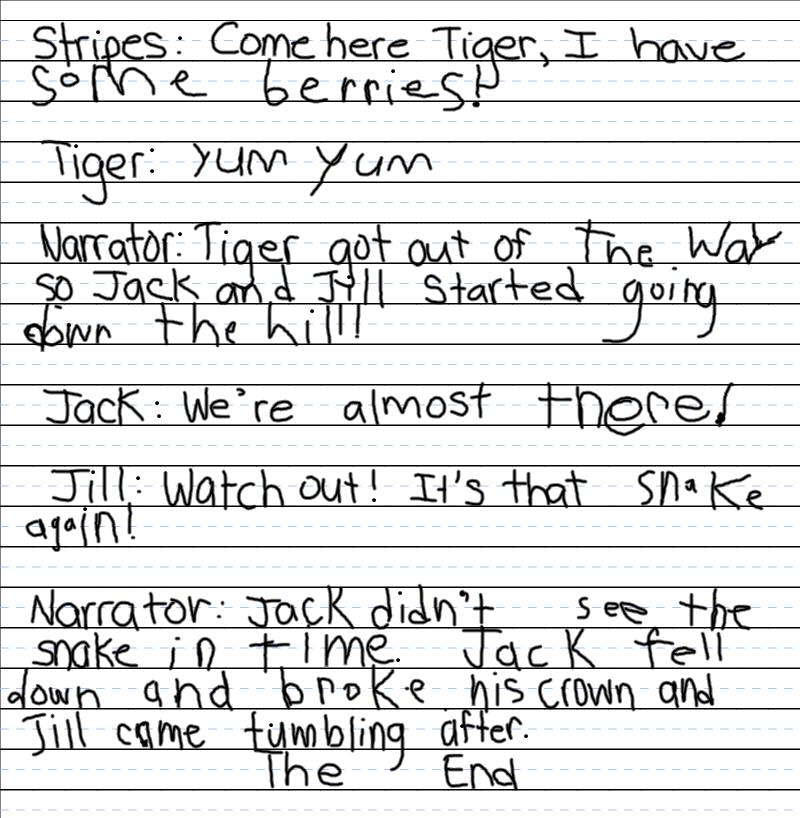 Stripes: Come here Tiger, I have
some berries!
Tiger: yum yum
Narrator: Tiger got out of the way
so Jack and Jill started going
down the hill!
Jack: We're almost there!
Jill: Watch out! It's that snake
again!
Narrator: Jack didn't see the
snake in time. Jack fell
down and broke his crown and
Jill came tumbling after.
The End